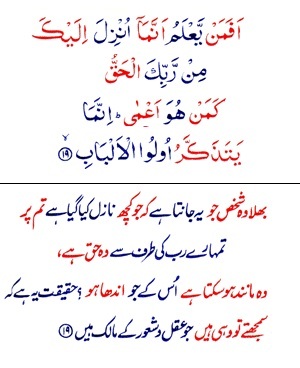 اَفَمَنْ يَّعْلَمُ اَنَّمَاۤ اُنْزِلَ اِلَيْكَ
مِنْ رَّبِّكَ الْحَقُّ
كَمَنْ هُوَ اَعْمٰى ؕ اِنَّمَا
يَتَذَكَّرُ اُولُوا الْاَلْبَابِ ۙ﴿۱۹﴾
بھلا وہ شخص جو یہ جانتا ہے کہ جو کچھ نازل کیا گیا ہے تم پر
تمہارے رب کی طرف سے وہ حق ہے،
وہ مانند ہو سکتا ہے اُس کے جو اندھا ہو؟ حقیقت یہ ہے کہ
سمجھتے تو وہی ہیں جو عقل و شعور کے مالک ہیں ﴿۱۹﴾